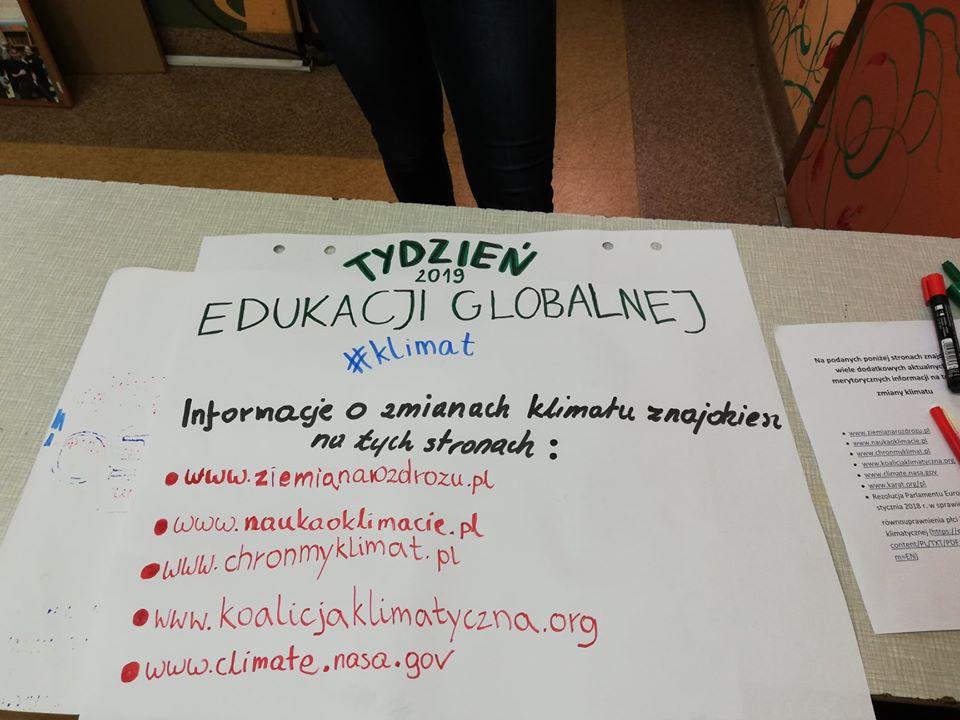 TYDZIEŃ
2019
EDUKACJI GLOBALNEJ
#klimat
Informacje o zmianach klimatu znajdziesz
na tych stronach :
• www.ziemianarozdrozu.pl
• www.naukaoklimacie.pl
• www.chronmyklimat.pl
• www.koalicjaklimatyczna.org
• www.climate.nasa.gov
Na podanych poniżej stronach
wiele dodatkowych aktualnych
merytorycznych informacji na
zmiany klimatu
• www.ziemianarozdrozu.pl
• www.naukaoklimacie.pl
• www.chronmyklimat.pl
• www.koalicjaklimatyczna.org
• www.climate.nasa.gov
• www.karat.org/pl
• Rezolucja Parlamentu
stycznia 2018 r. w sprawie
równouprawnienia płci
klimatycznej (https://
content/PL/TXT/PDF
m=EN)